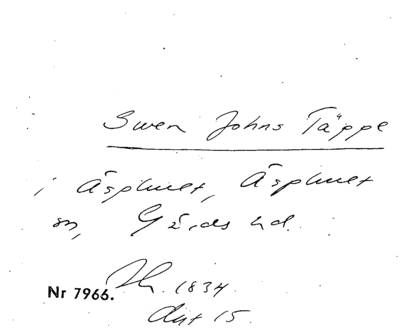 Swen Johns Täppe
i Äsphult, Äsphult
sn, Gärds hd.
Nr 7966. 1834.
15.